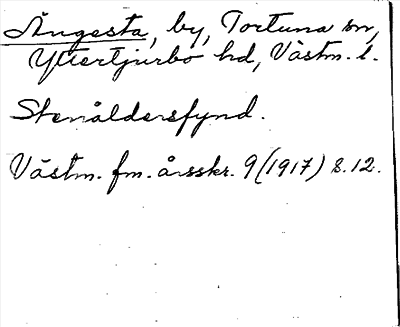 Ängesta, by, Tortuna sn,
Yttertjurbo hd, Västm. l.
Stenåldersfynd.
Västm. fm. årsskr. 9 (1917) s. 12.